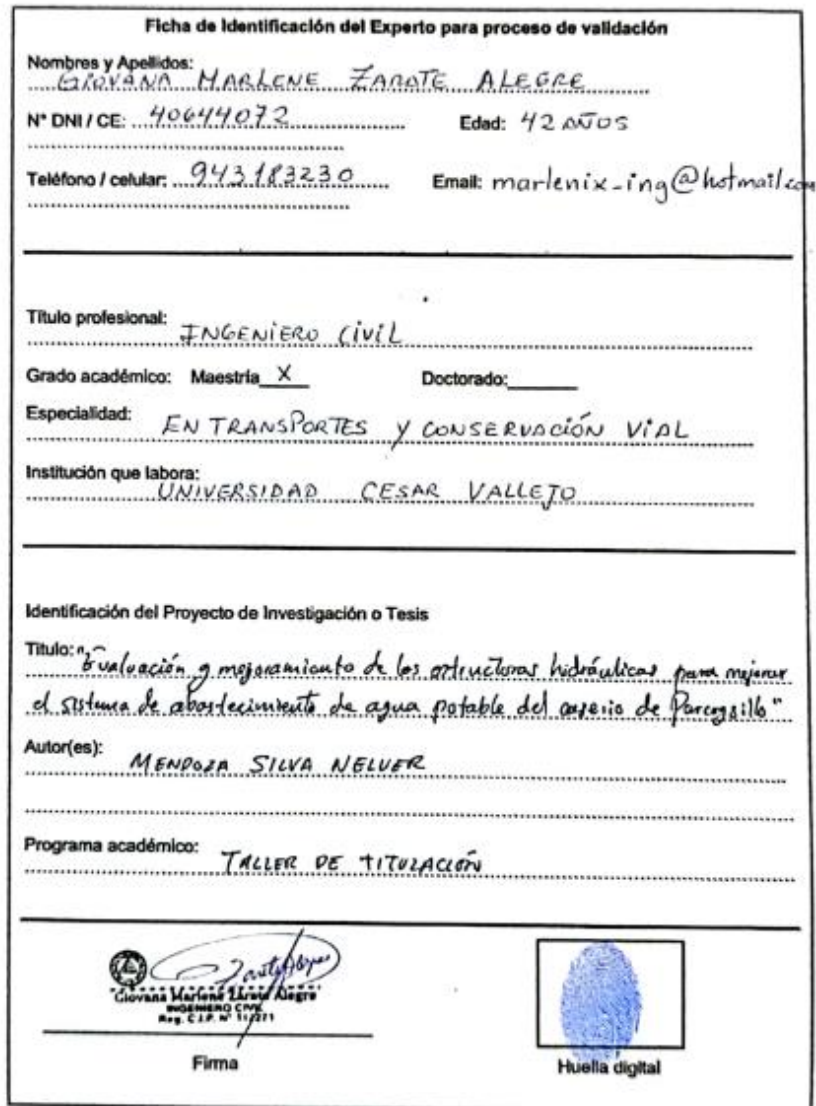 Ficha de Identificación del Experto para proceso de validación
Nombres y Apellidos:
GIOVANA MARLENE ZARATE ALEGRE
N° DNI / CE: 40644072 Edad: 42 AÑOS
Teléfono / celular: 943183230 Email: marlenix_ing@hotmail.com
Título profesional: INGENIERO CIVIL
Grado académico: Maestría X Doctorado:
Especialidad: EN TRANSPORTES Y CONSERVACIÓN VIAL
Institución que labora:
UNIVERSIDAD CESAR VALLEJO
Identificación del Proyecto de Investigación o Tesis
Titulo: "Evaluación y mejoramiento de las estructuras hidráulicas para mejorar
el sistema de abastecimiento de agua potable del caserio de"
Autor(es): MENDOZA SILVA NELVER
Programa académico: TALLER DE TITULACIÓN
Giovana Marlene Zárate Alegre
INGENIERO CIVIL
Reg. C.I.P. N°
Firma Huella digital